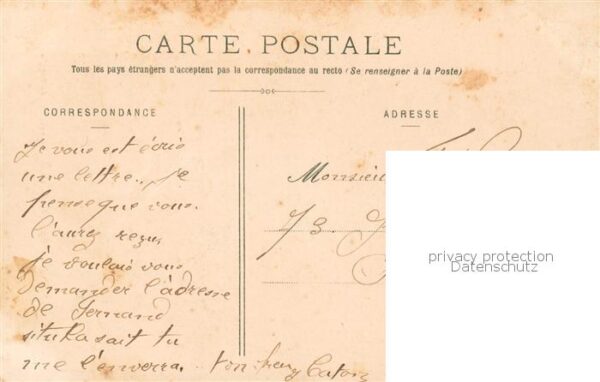 CARTE POSTALE
Tous les pays étrangers n'acceptent pas la correspondance au recto (Se renseigner à la Poste)
CORRESPONDANCE
ADRESSE
Je vous est écris
une lettre.. je
pense que vous
l'aurez reçus
je voulais vous
demander l'adresse
de Fernand
si tu la sait tu
me l'enverra.
Monsieu
73
privacy protection
Datenschutz